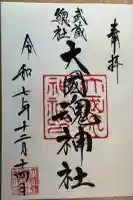 奉拝
武蔵
總社
大國魂神社
令和七年十二月十四日